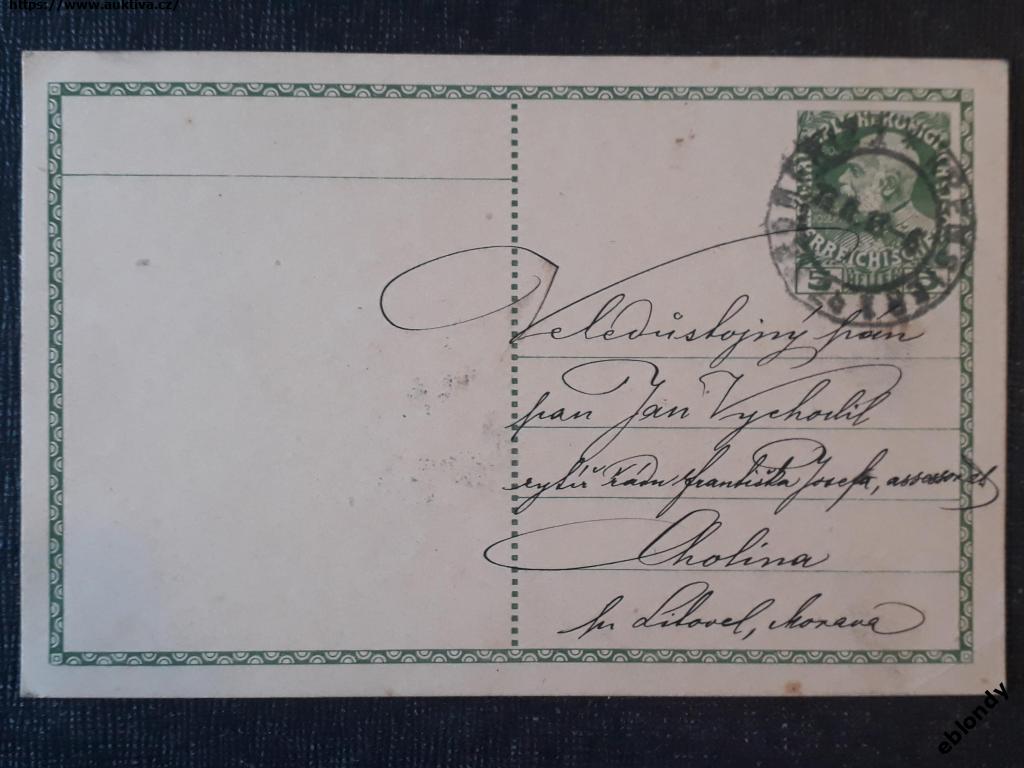 https://www.auktiva.cz/
5 HELLER
Veledůstojný pán
pan Jan Vychodil
rytíř řádu Františka Josefa, assessor atd
Cholina
pr Litovel, Morava
eblondy